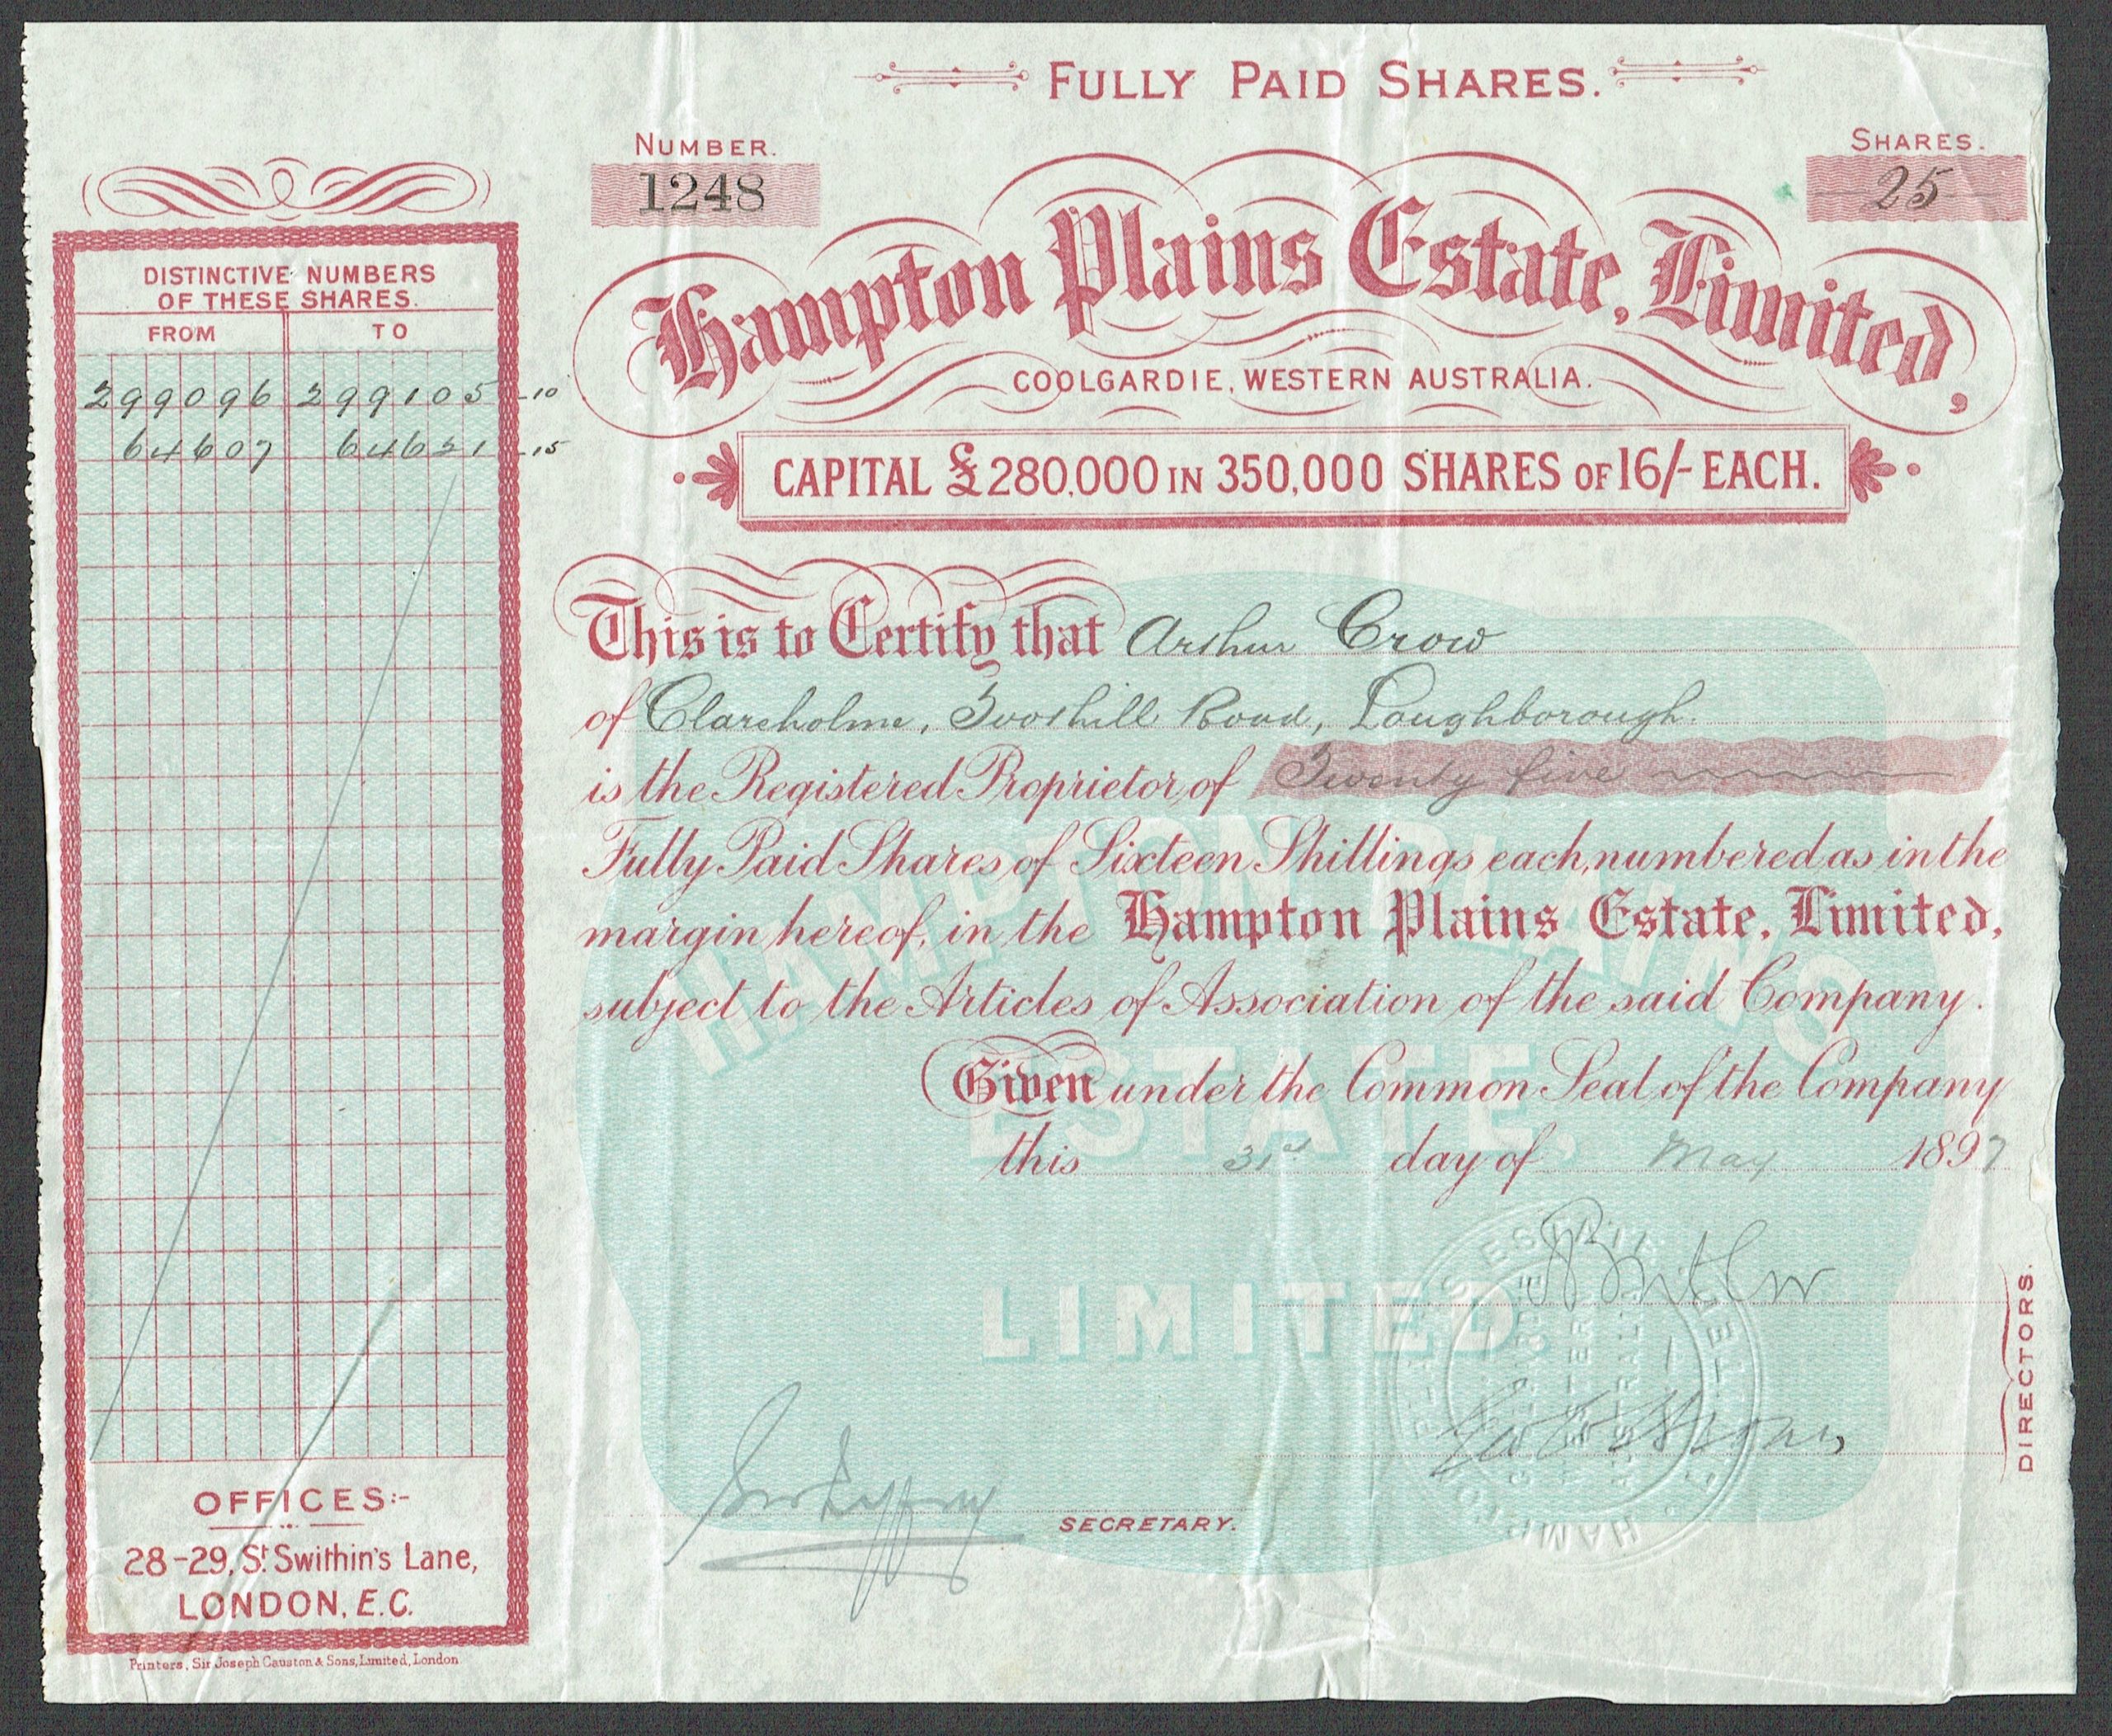 FULLY PAID SHARES.
NUMBER.
1248
SHARES.
25
Hampton Plains Estate, Limited,
COOLGARDIE, WESTERN AUSTRALIA.
CAPITAL £280,000 IN 350,000 SHARES OF 16/- EACH.
DISTINCTIVE NUMBERS
OF THESE SHARES.
FROM TO
299096 299105 -10
64607 64621 -15
This is to Certify that Arthur Crow
of Clareholme, Road, Loughborough.
is the Registered Proprietor of Twenty five
Fully Paid Shares of Sixteen Shillings each, numbered as in the
margin hereof, in the Hampton Plains Estate, Limited,
subject to the Articles of Association of the said Company.
Given under the Common Seal of the Company
this 31st day of May 1897
HAMPTON PLAINS
ESTATE,
LIMITED.
DIRECTORS.
SECRETARY.
OFFICES:-
28-29, St Swithin's Lane,
LONDON, E.C.
Printers, Sir Joseph Causton & Sons, Limited, London